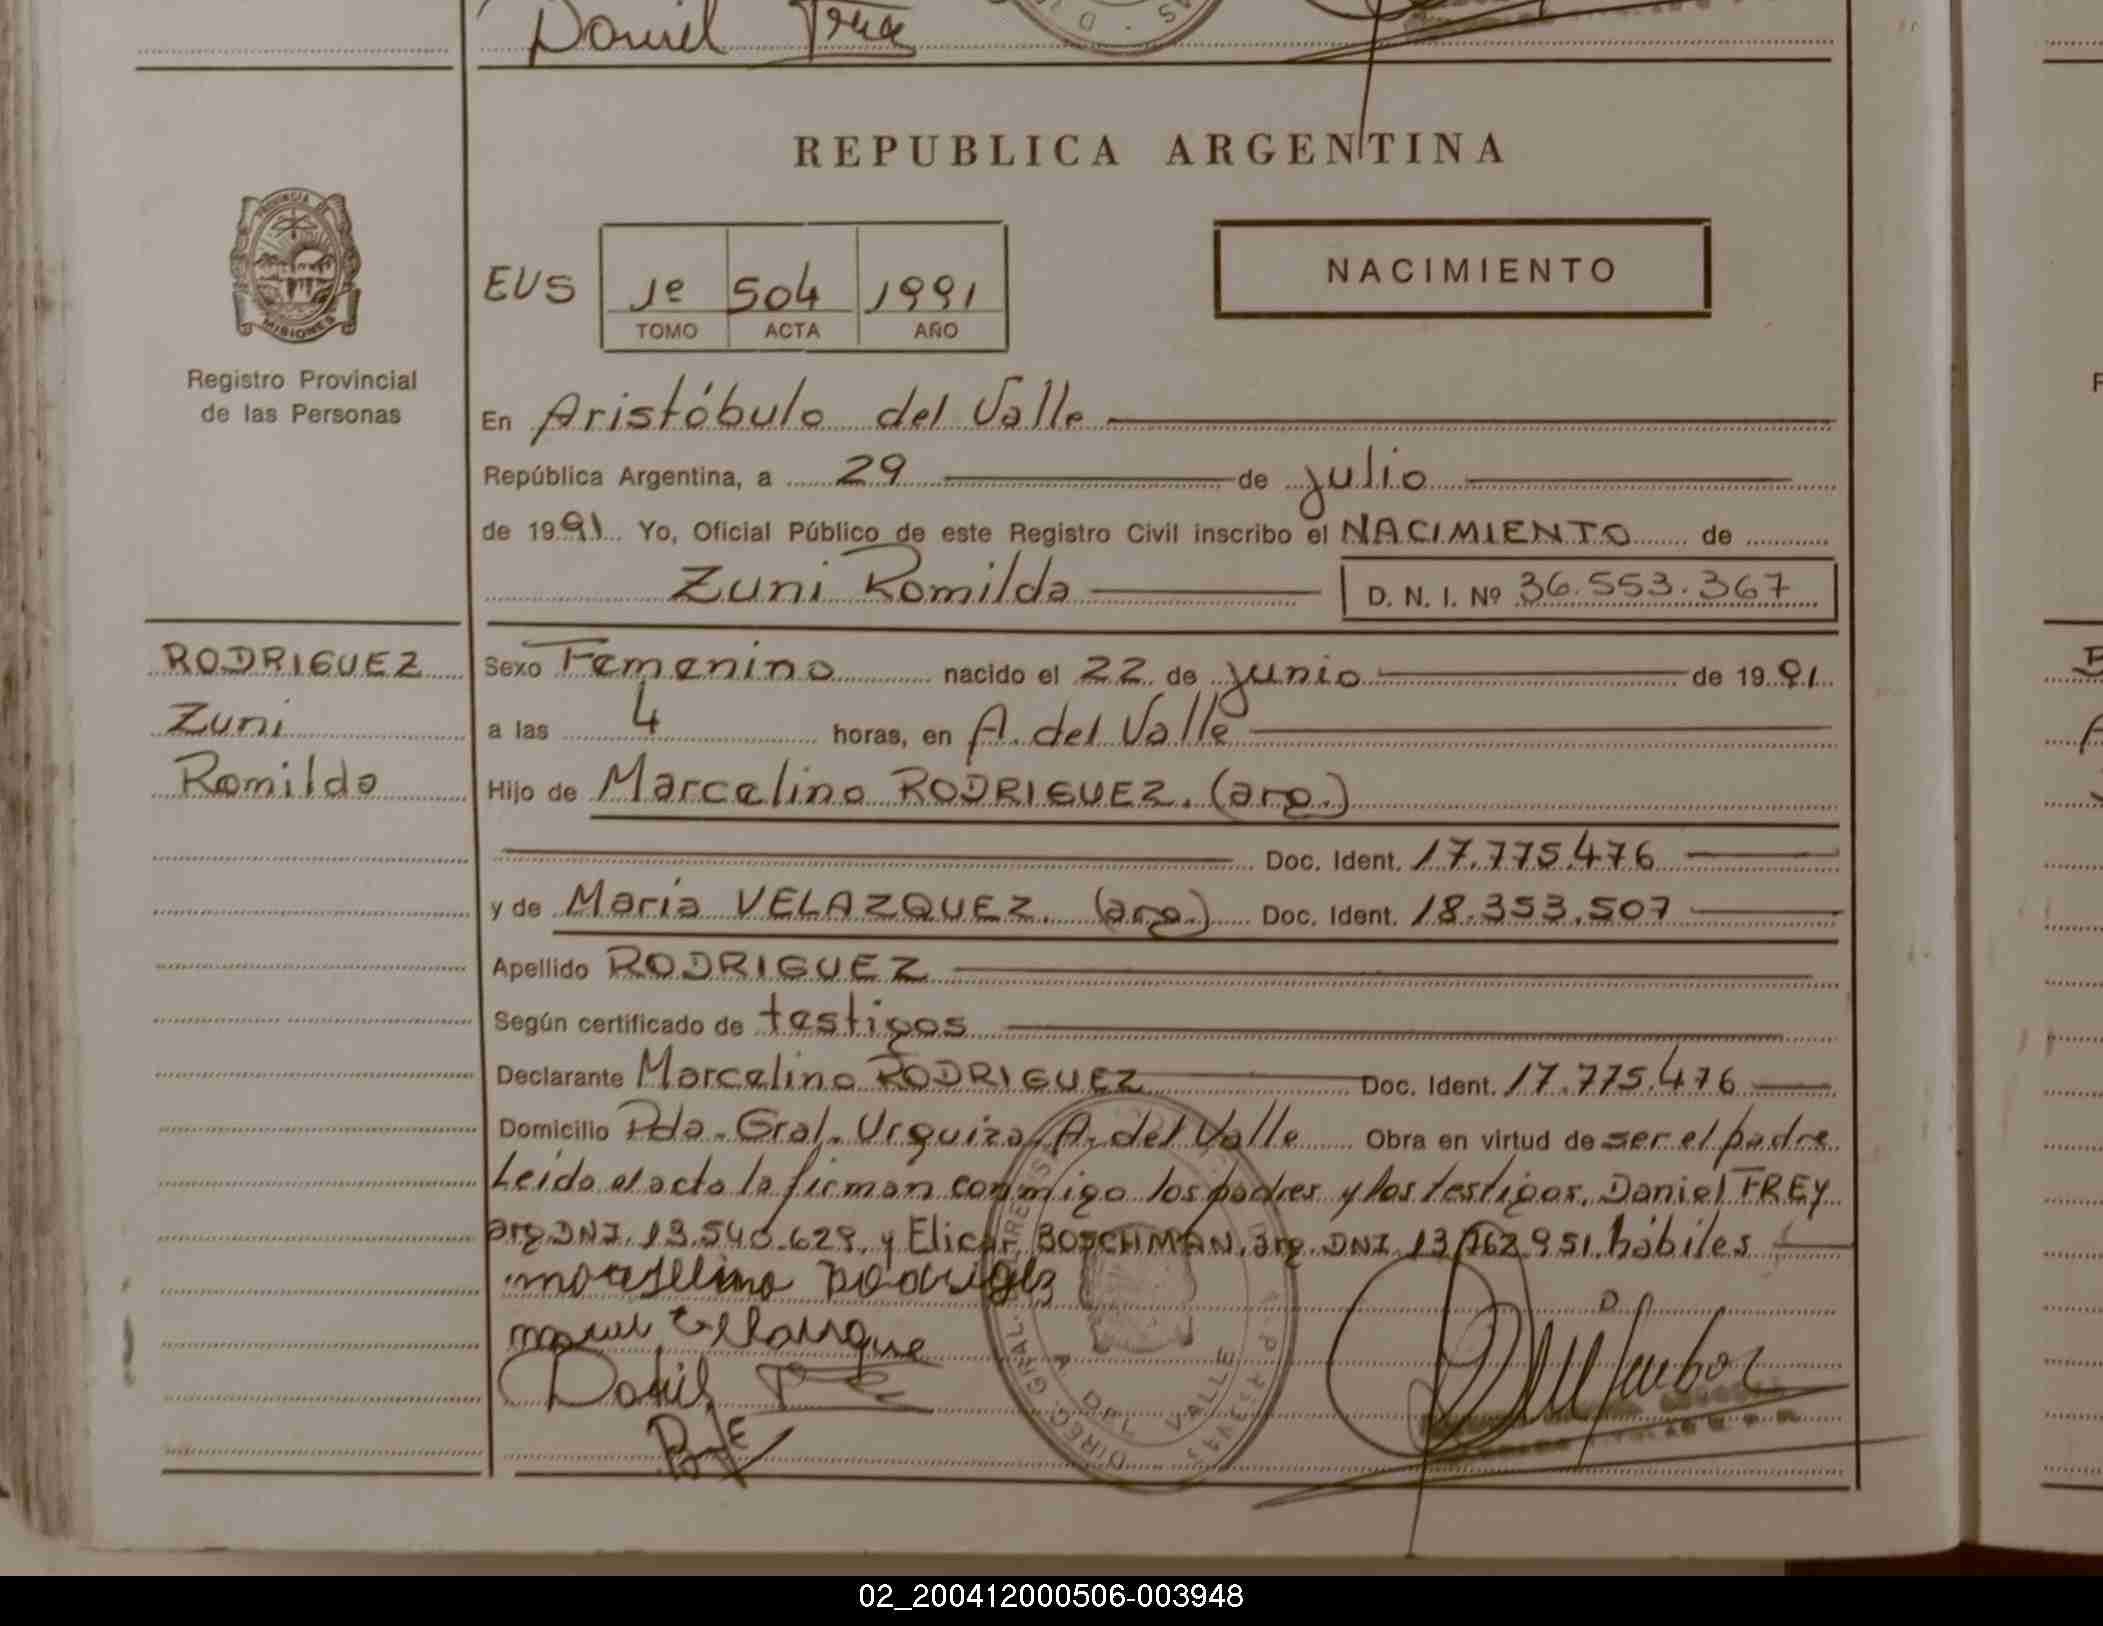 Daniel Frey
REPUBLICA ARGENTINA
PROVINCIA DE
MISIONES
Registro Provincial
de las Personas
EUS 1º 504 1991
TOMO ACTA AÑO
NACIMIENTO
En Aristóbulo del Valle
República Argentina, a 29 de julio
de 1991 Yo, Oficial Público de este Registro Civil inscribo el NACIMIENTO de
Zuni Romilda D. N. I. Nº 36.553.367
RODRIGUEZ
Zuni
Romilda
Sexo Femenino nacido el 22 de junio de 1991
a las 4 horas, en A. del Valle
Hijo de Marcelino RODRIGUEZ. (arg.)
Doc. Ident. 17.775.476
y de María VELAZQUEZ. (arg.) Doc. Ident. 18.353.507
Apellido RODRIGUEZ
Según certificado de testigos
Declarante Marcelino RODRIGUEZ Doc. Ident. 17.775.476
Domicilio Pda. Gral. Urquiza, A. del Valle Obra en virtud de ser el padre
Leída el acta la firman conmigo los padres y los testigos. Daniel FREY
arg. DNI. 13.540.629. y Elicar BOSCHMAN. arg. DNI 13.762.951. hábiles
A DEL VALLE
02_200412000506-003948